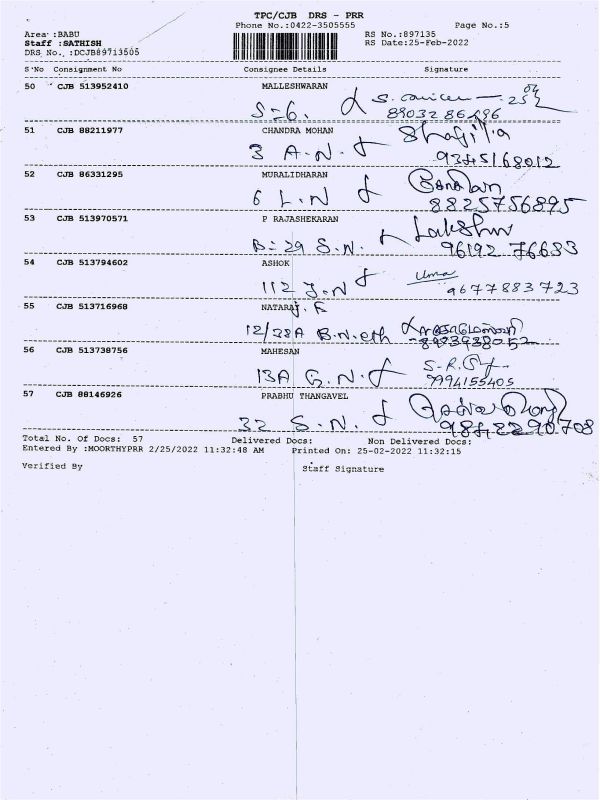 TPC/CJB DRS - PRR
Phone No.:0422-3505555 Page No.:5
Area :BABU RS No.:897135
Staff :SATHISH RS Date:25-Feb-2022
DRS No. :DCJB89713505
S'No Consignment No Consignee Details Signature
50 CJB 513952410 MALLESHWARAN
S=6. 25
89032 86496
51 CJB 88211977 CHANDRA MOHAN
3 A.N. 9345168012
52 CJB 86331295 MURALIDHARAN
6 L.N 8825756895
53 CJB 513970571 P RAJASHEKARAN Lakshmi
B=29 S.N. 96192 76633
54 CJB 513794602 ASHOK uma
112 J.N 9677883723
55 CJB 513716968 NATARAJ. R
12/38A B.N.eth 8939388052
56 CJB 513738756 MAHESAN
13A G.N. 9994155405
57 CJB 88146926 PRABHU THANGAVEL
32 S.N. 9842290708
Total No. Of Docs: 57 Delivered Docs: Non Delivered Docs:
Entered By :MOORTHYPRR 2/25/2022 11:32:48 AM Printed On: 25-02-2022 11:32:15
Verified By Staff Signature